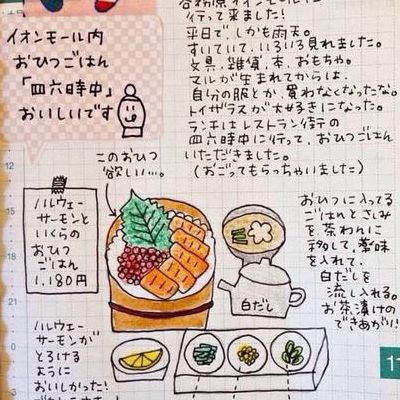 イオンモール内
おひつごはん
「四六時中」
おいしいです
行って来ました!
平日で、しかも雨天。
すいていて、いろいろ見れました。
文具、雑貨、本、おもちゃ。
マルが生まれてからは、
自分の服とか、買わなくなったな。
トイザラスが大好きになった。
ランチはレストラン街の
四六時中に行って、おひつごはん
いただきました。
(おごってもらっちゃいました)
このおひつ
欲しい…。
ノルウェー
サーモンと
いくらの
おひつ
ごはん
1,180円
白だし
おひつに入ってる
ごはんとさしみ
を茶わんに
移して、薬味
を入れて、
白だしを
流し入れる。
お茶漬けの
できあがり!
ノルウェー
サーモンが
とろける
ように
おいしかった!
12
15
18
21
0
11